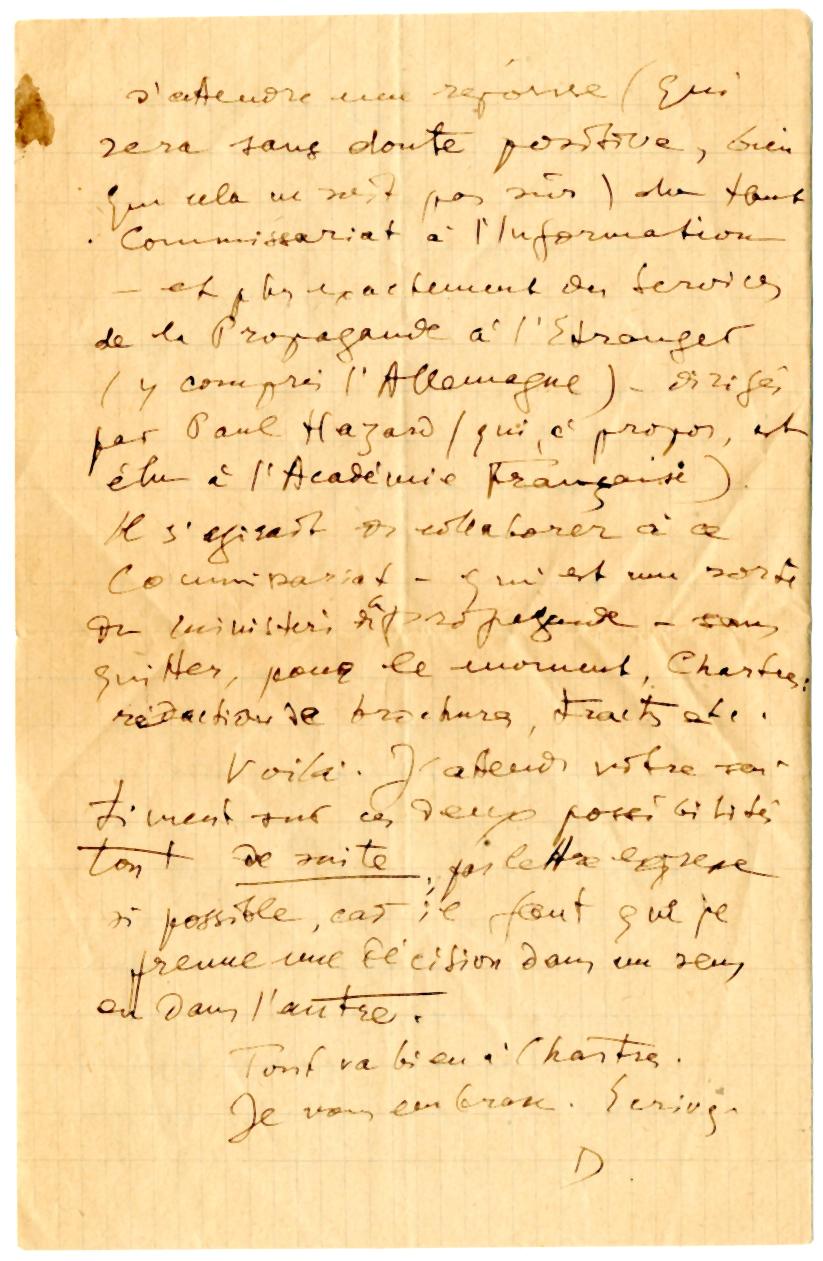 s'attendre une réponse (qui
sera sans doute positive, bien
que cela ne soit pas sûr) du Haut
Commissariat à l'Information
— et plus exactement des Services
de la Propagande à l'Etranger
(y compris l'Allemagne) — dirigés
par Paul Hazard (qui, à propos, est
élu à l'Académie Française).
Il s'agirait de collaborer à ce
Commissariat — qui est une sorte
de ministère de propagande — sans
quitter, pour le moment, Chartres:
rédaction de brochures, tracts etc.
Voilà. J'attends votre sen-
timent sur ces deux possibilités
tout de suite, par lettre expresse
si possible, car il faut que je
prenne une décision dans un sens
ou dans l'autre.
Tout va bien à Chartres.
Je vous embrasse. Ecrivez.
D.